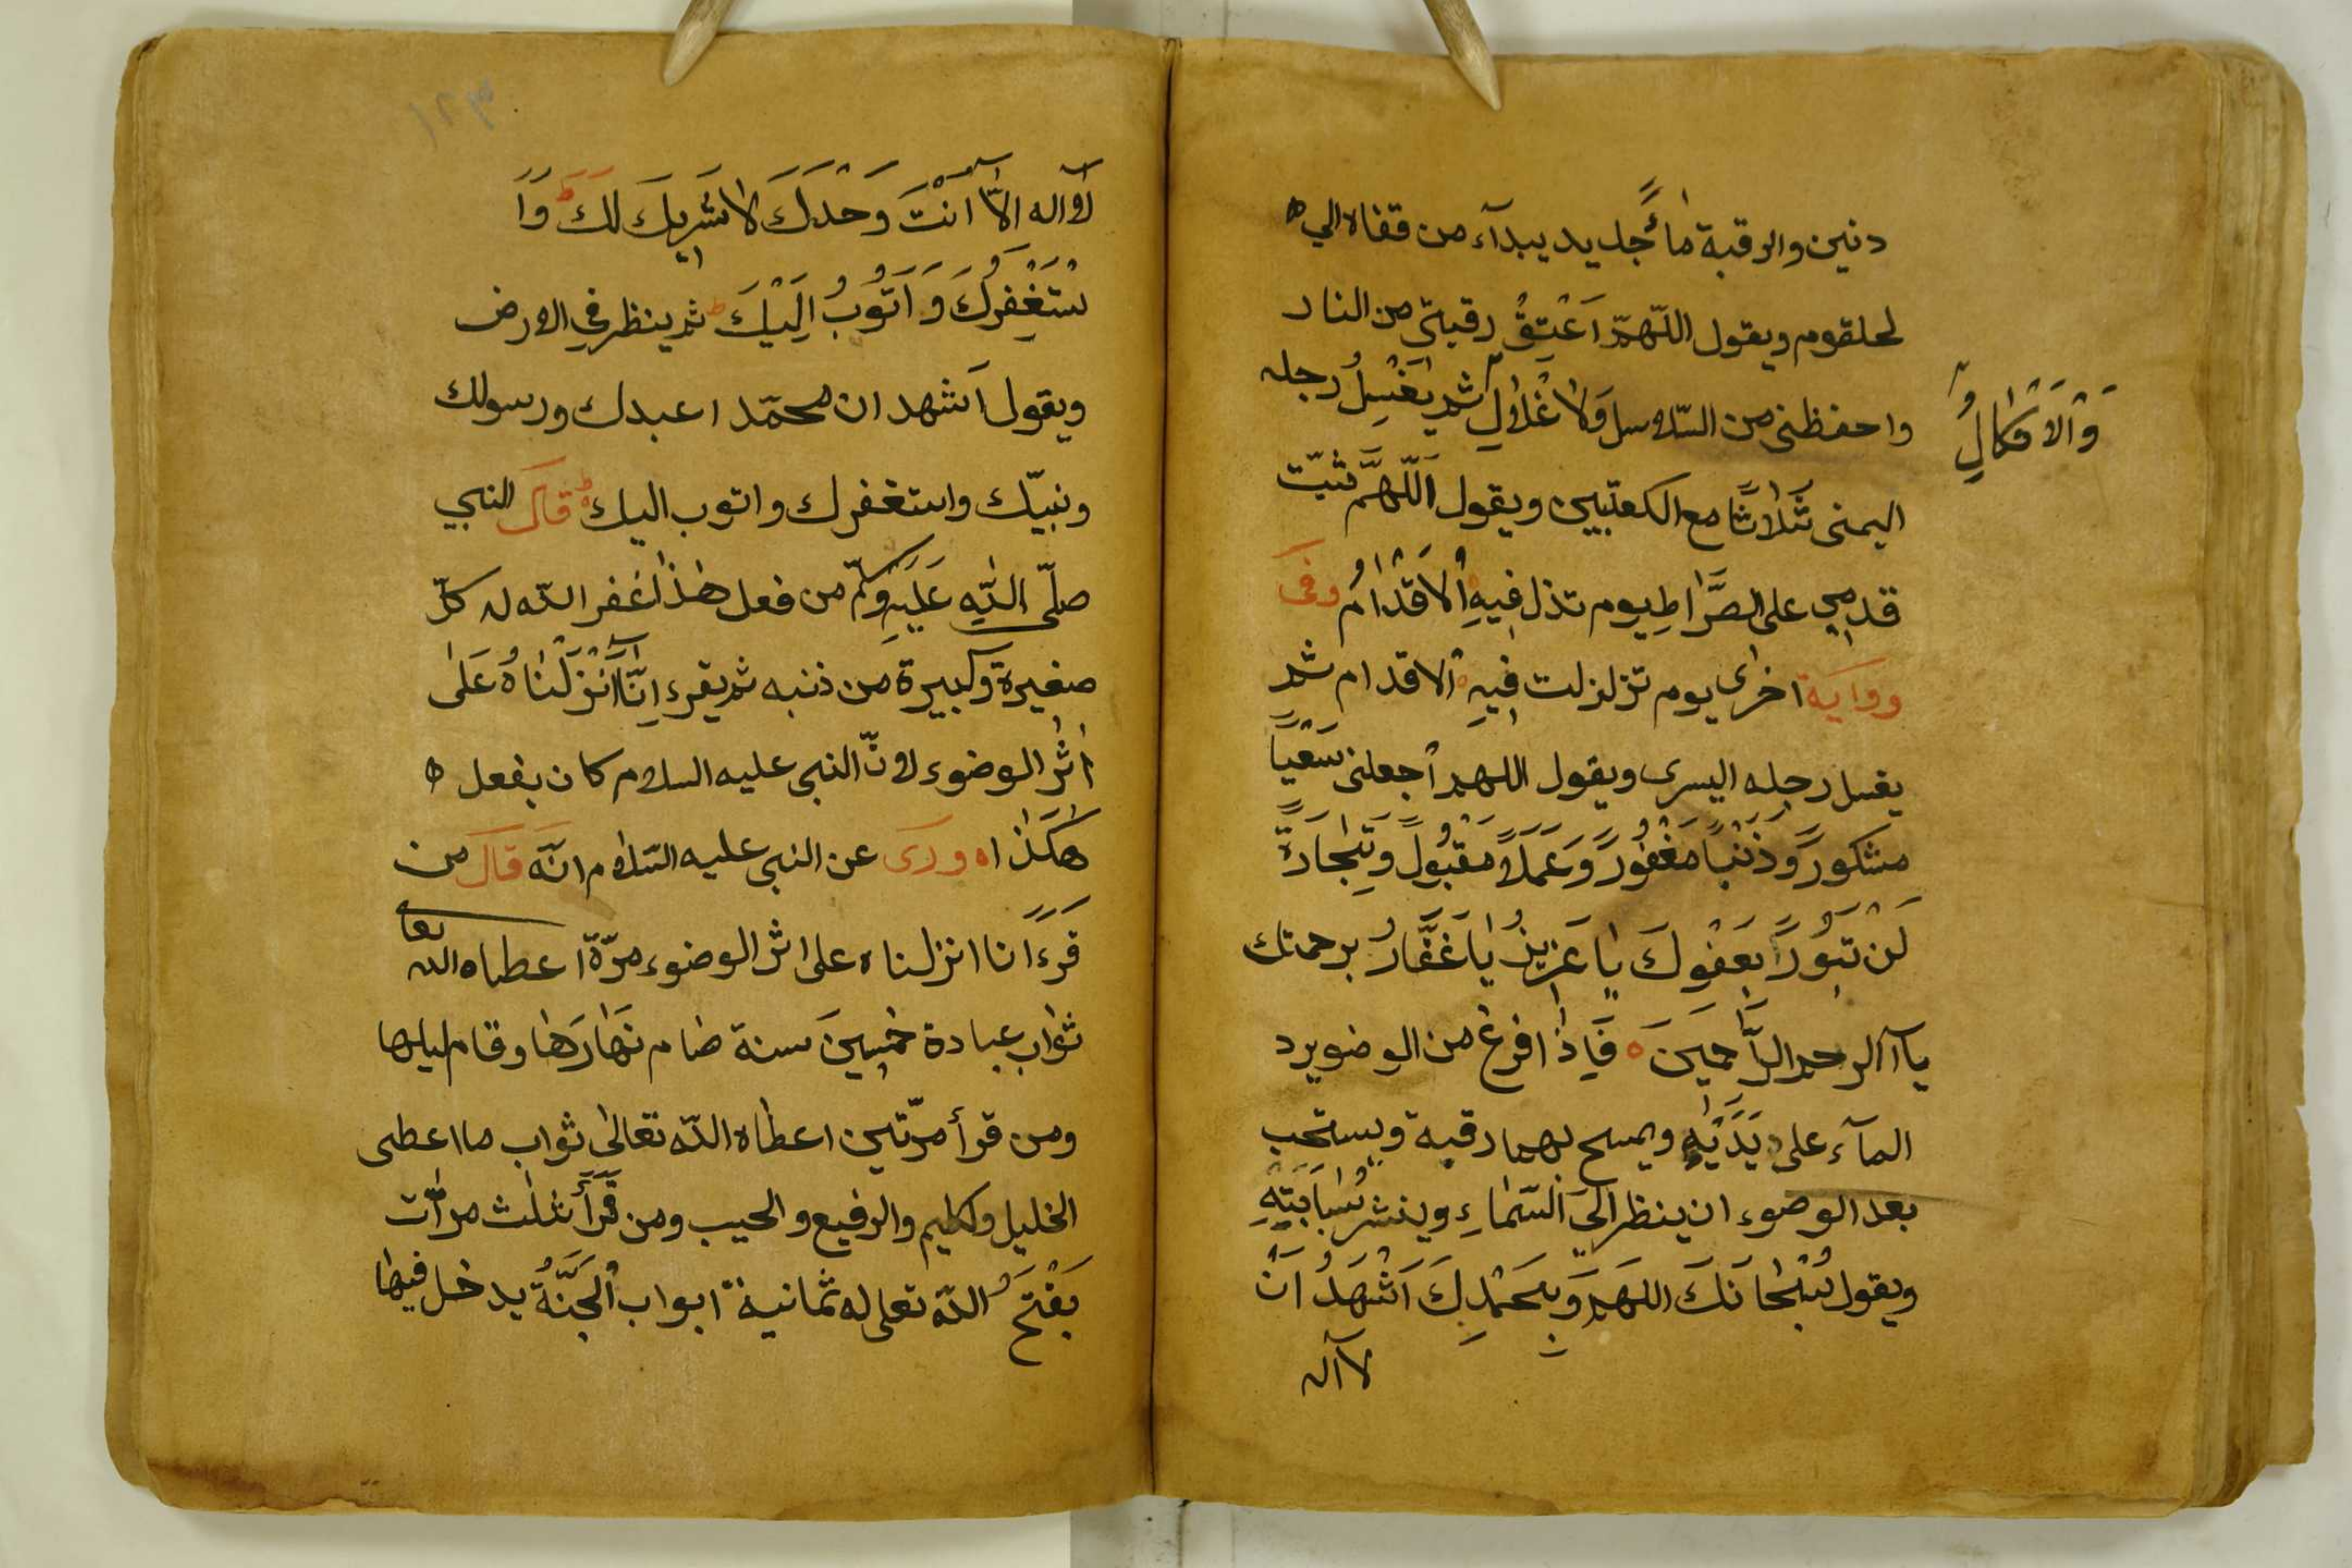 دنين والرقبة مأً جديد يبدآء من قفاه الي ه
لحلقوم ويقول اللّهمّ اَعْتِقْ رقبتي من النار
واحفظنى من السّلاسل وَلاَغْلاٰلِ ثم يَغْسِلُ رجله
وَالْاَنْكَالِ
اليمنى ثَلاٰثًا مع الكعبيين ويقول اَللّٰهُمَّ ثبّت
قدمي على الصَّرٰاطِ يوم تذل فِيهِ اْلاَقْدٰامُ وفى
رواية اخرٰى يوم تزلزلت فِيهِ الاقدام ثم
يغسل رجله اليسرى ويقول اللهم اْجعلنى سَعْيًا
مشكورً وذَنْبًا مَغْفُورً وَعَمَلاً مَقْبُولً وَتِجٰارَةً
لَنْ تَبُورًا بعَفْوِكَ يٰا عَزِيزُ يٰا غَفَّارُ برحمتك
يآ الرحم الرّٰاحمِينَ ه فَاِذٰا فرغ من الوضو يرد
المآء على يَدَيْهِ ويمسح بهما رقبة ويستحب
بعد الوضوء ان ينظر اِلَى السّمٰاءِ وينشر سَبّابَتِهِ
ويقول سُبْحٰانَكَ اللهم وَبِحَمْدِكَ اَشْهَدُ اَنْ
لا آله
١٢٣
لاۤ اله الاّۤ اَنْتَ وَحْدَكَ لاٰشَرِيكَ لَكَ وَاَ
سْتَغْفِرُكَ وَ اَتُوبُ اِلَيْكَ ثم ينظر في الارض
ويقول اَشهد ان محمّد ا عبدك ورسولك
ونبيّك واستغفرك واتوب اليك قَالَ النبي
صلّى اللّٰهِ عَلَيْهِ وسلّم من فعل هٰذٰا غفر اللّه له كلّ
صغيرة وكبيرة من ذنبه ثم يقرء اِنَّاۤ اَنْزَلْنٰاهُ عَلٰى
اَثْرِ الوضوء لانّ النبي عليه السلام كان يفعل ه
هٰكَذٰا ه ورَى عن النبي عليه السّلام انَّه قَالَ من
قَرَءَ انا انزلناه على اثر الوضوء مرّة اعطاه الله تعا
ثوٰاب عبادة خمسِينَ سنة صٰام نَهٰارَهٰا وقام ليلها
ومن قرأ مرّتين اعطاه اللّه تعالىٰ ثواب ما اعطى
الخليل وكليم والرفيع والحبيب ومن قَرَأَ ثلٰث مرّات
يَفْتَحُ اللّه تعالى له ثمانية ابواب اْلجَنَّةُ يدخل فيهٰا